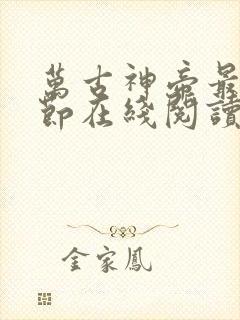 萬古神帝最
節在綫閱讀
金家鳳